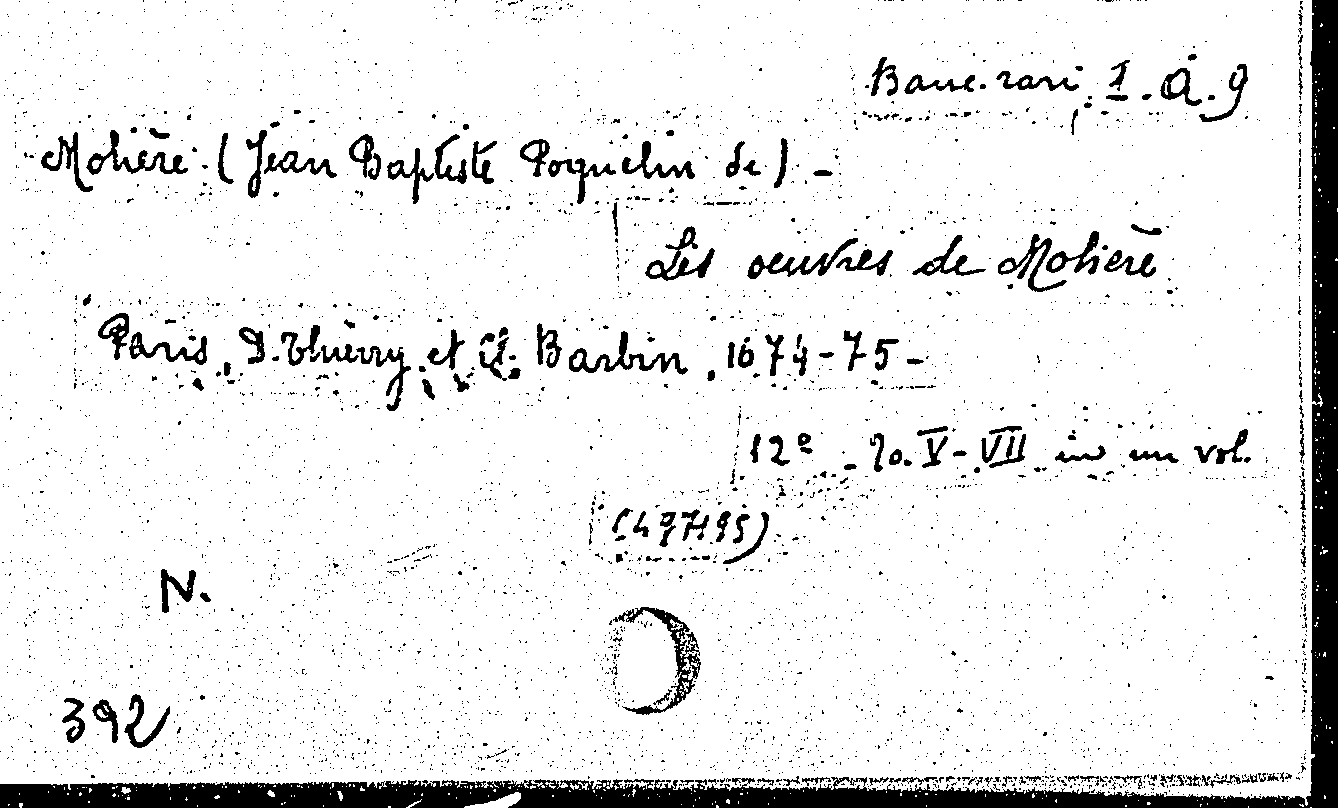 Banc. rari 1. A. 9
Molière (Jean Baptiste Poquelin de) -
Les oeuvres de Molière
Paris, D. Thierry et Cl. Barbin, 1674-75-
12º - To. V-VII in un vol.
(497195)
N.
392